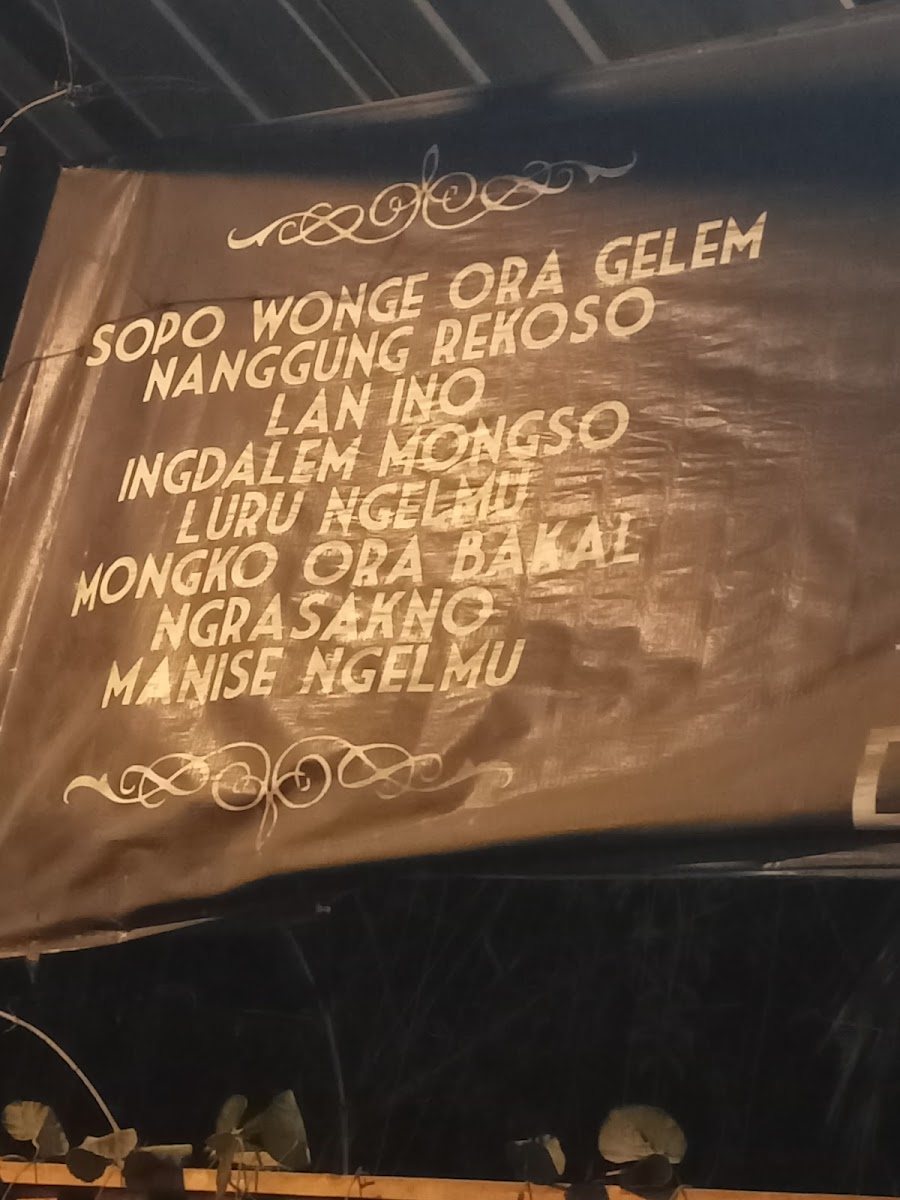 SOPO WONGE ORA GELEM
NANGGUNG REKOSO
LAN INO
INGDALEM MONGSO
LURU NGELMU
MONGKO ORA BAKAL
NGRASAKNO
MANISE NGELMU